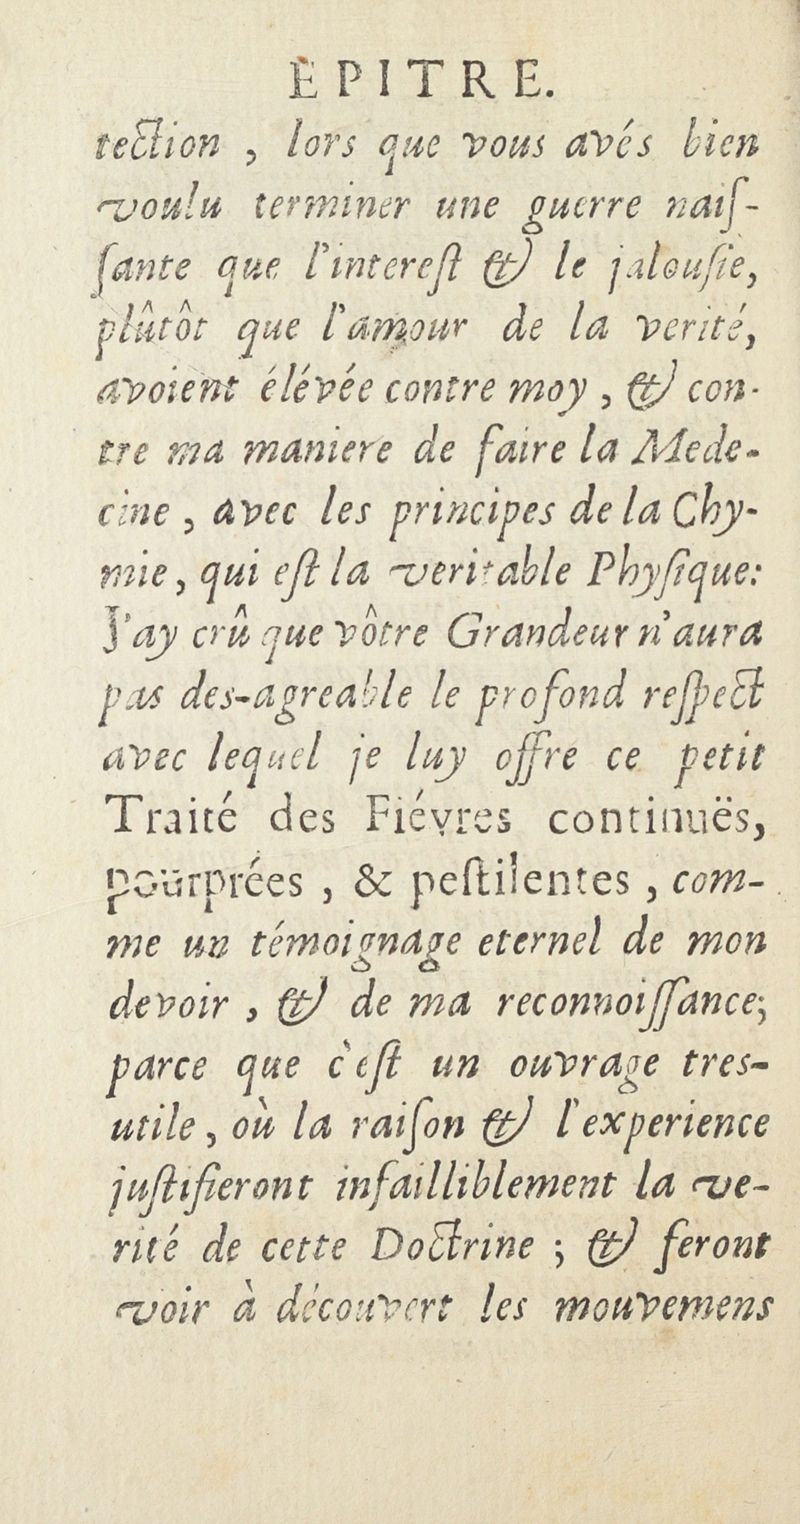 ÈPITRE.
tection , lors que vous avés bien
voulu terminer une guerre naiſ-
ſante que l'intereſt & le jalouſie,
plûtôt que l'amour de la verité,
avoient élévée contre moy , & con-
tre ma maniere de faire la Mede-
cine , avec les principes de la Chy-
mie , qui eſt la veritable Phyſique:
J'ay crû que vôtre Grandeur n'aura
pas des-agreable le profond reſpect
avec lequel je luy offre ce petit
Traité des Fiévres continuës,
pourprées , & peſtilentes , com-
me un témoignage eternel de mon
devoir , & de ma reconnoiſſance;
parce que c'eſt un ouvrage tres-
utile , où la raiſon & l'experience
juſtifieront infailliblement la ve-
rité de cette Doctrine ; & feront
voir à découvert les mouvemens